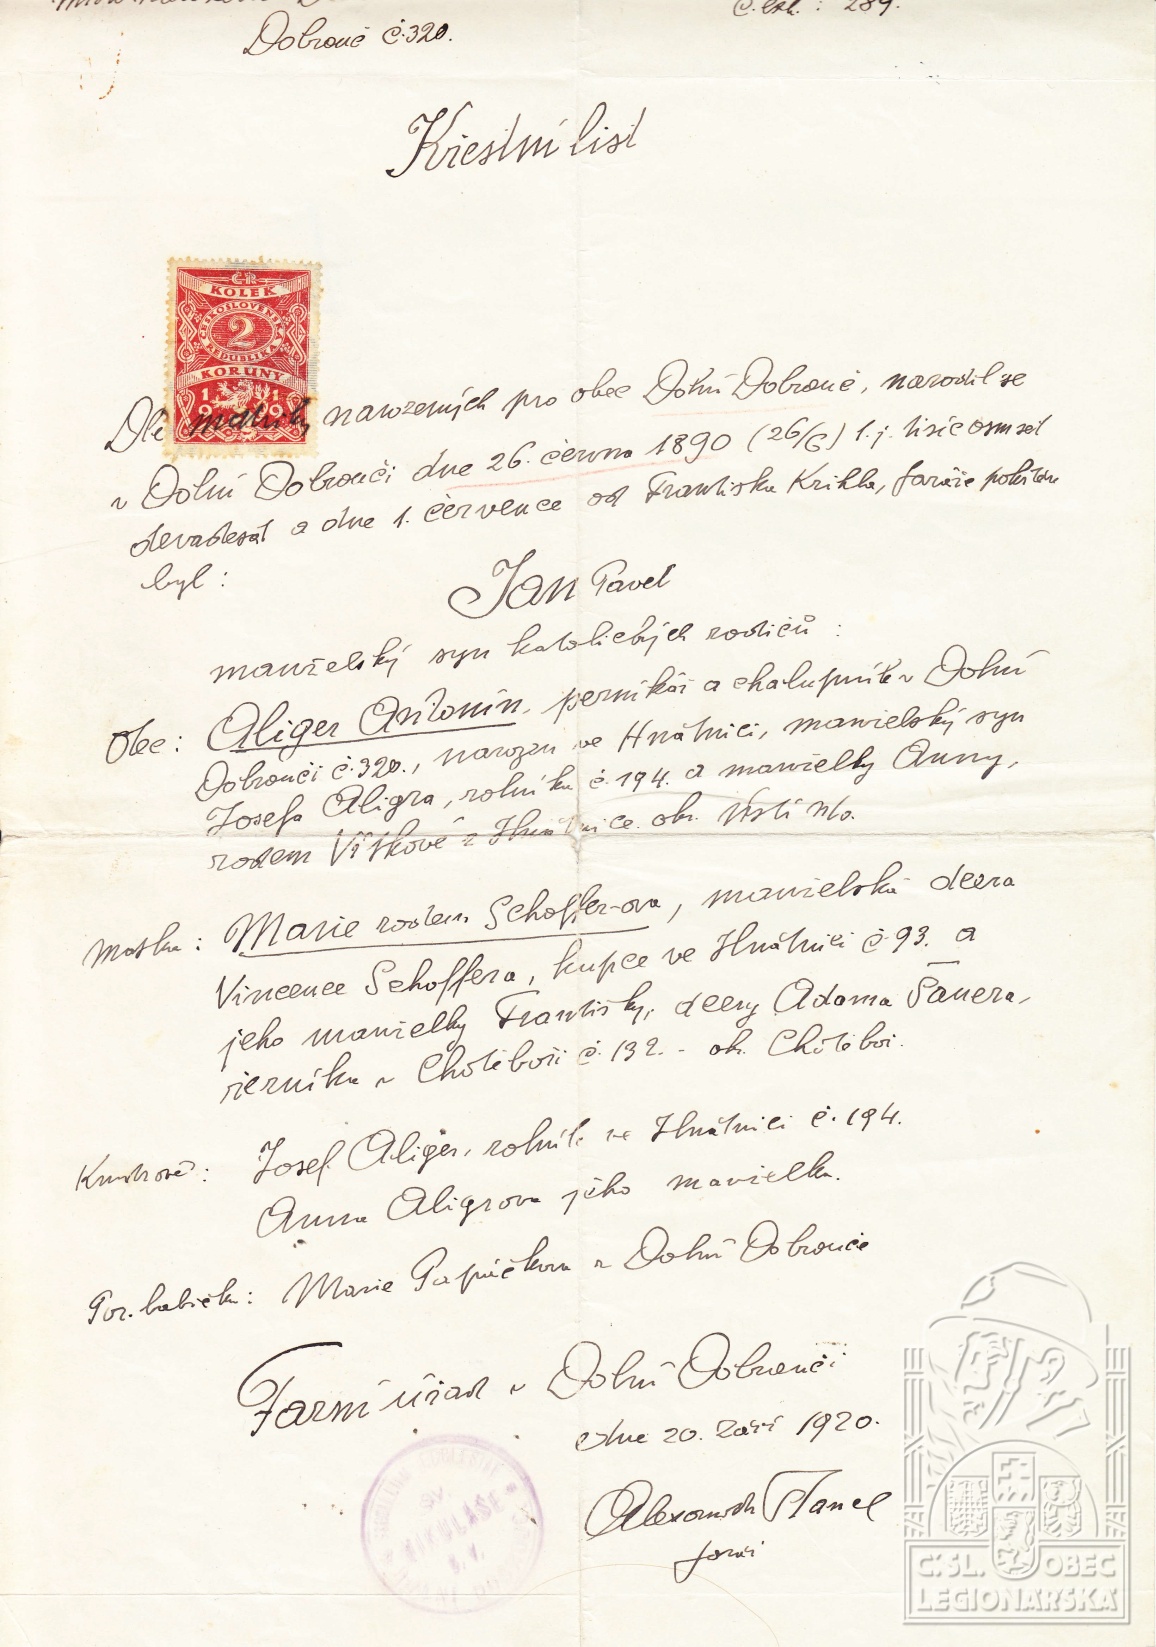 č. exh. : 289.
Dobrouč č. 320.
Křestní list
ČR
KOLEK
ČESKOSLOVENSKÁ
2
REPUBLIKA
KORUNY
1 1
9 9
Dle matriky narozených pro obec Dolní Dobrouč, narodil se
v Dolní Dobrouči dne 26. června 1890 (26/6) t. j. tisíc osm set
devadesát a dne 1. července od Františka Krikla, faráře pokřtěn
byl :
Jan Pavel
manželský syn katolických rodičů :
Otec : Aliger Antonín, perníkář a chalupník v Dolní
Dobrouči č. 320., narozen ve Hnátnici, manželský syn
Josefa Aligra, rolníka č. 194. a manželky Anny,
rodem Vítkové z Hnátnice. okr. Ústí n/o.
Matka : Marie rodem Schoffer-ova, manželská dcera
Vincence Schoffera, kupce ve Hnátnici č. 93. a
jeho manželky Františky, dcery Adama Šauera,
v Chotěboři č. 132. - ok. Chotěboř.
Kmotrové : Josef Aliger, rolník ve Hnátnici č. 194.
Anna Aligrova jeho manželka.
Por. babička : Marie v Dolní Dobrouče
Farní úřad v Dolní Dobrouči
dne 20. září 1920.
Alexandr Hanel
farář
SV.
MIKULÁŠE
Č.SL. OBEC
LEGIONÁŘSKÁ